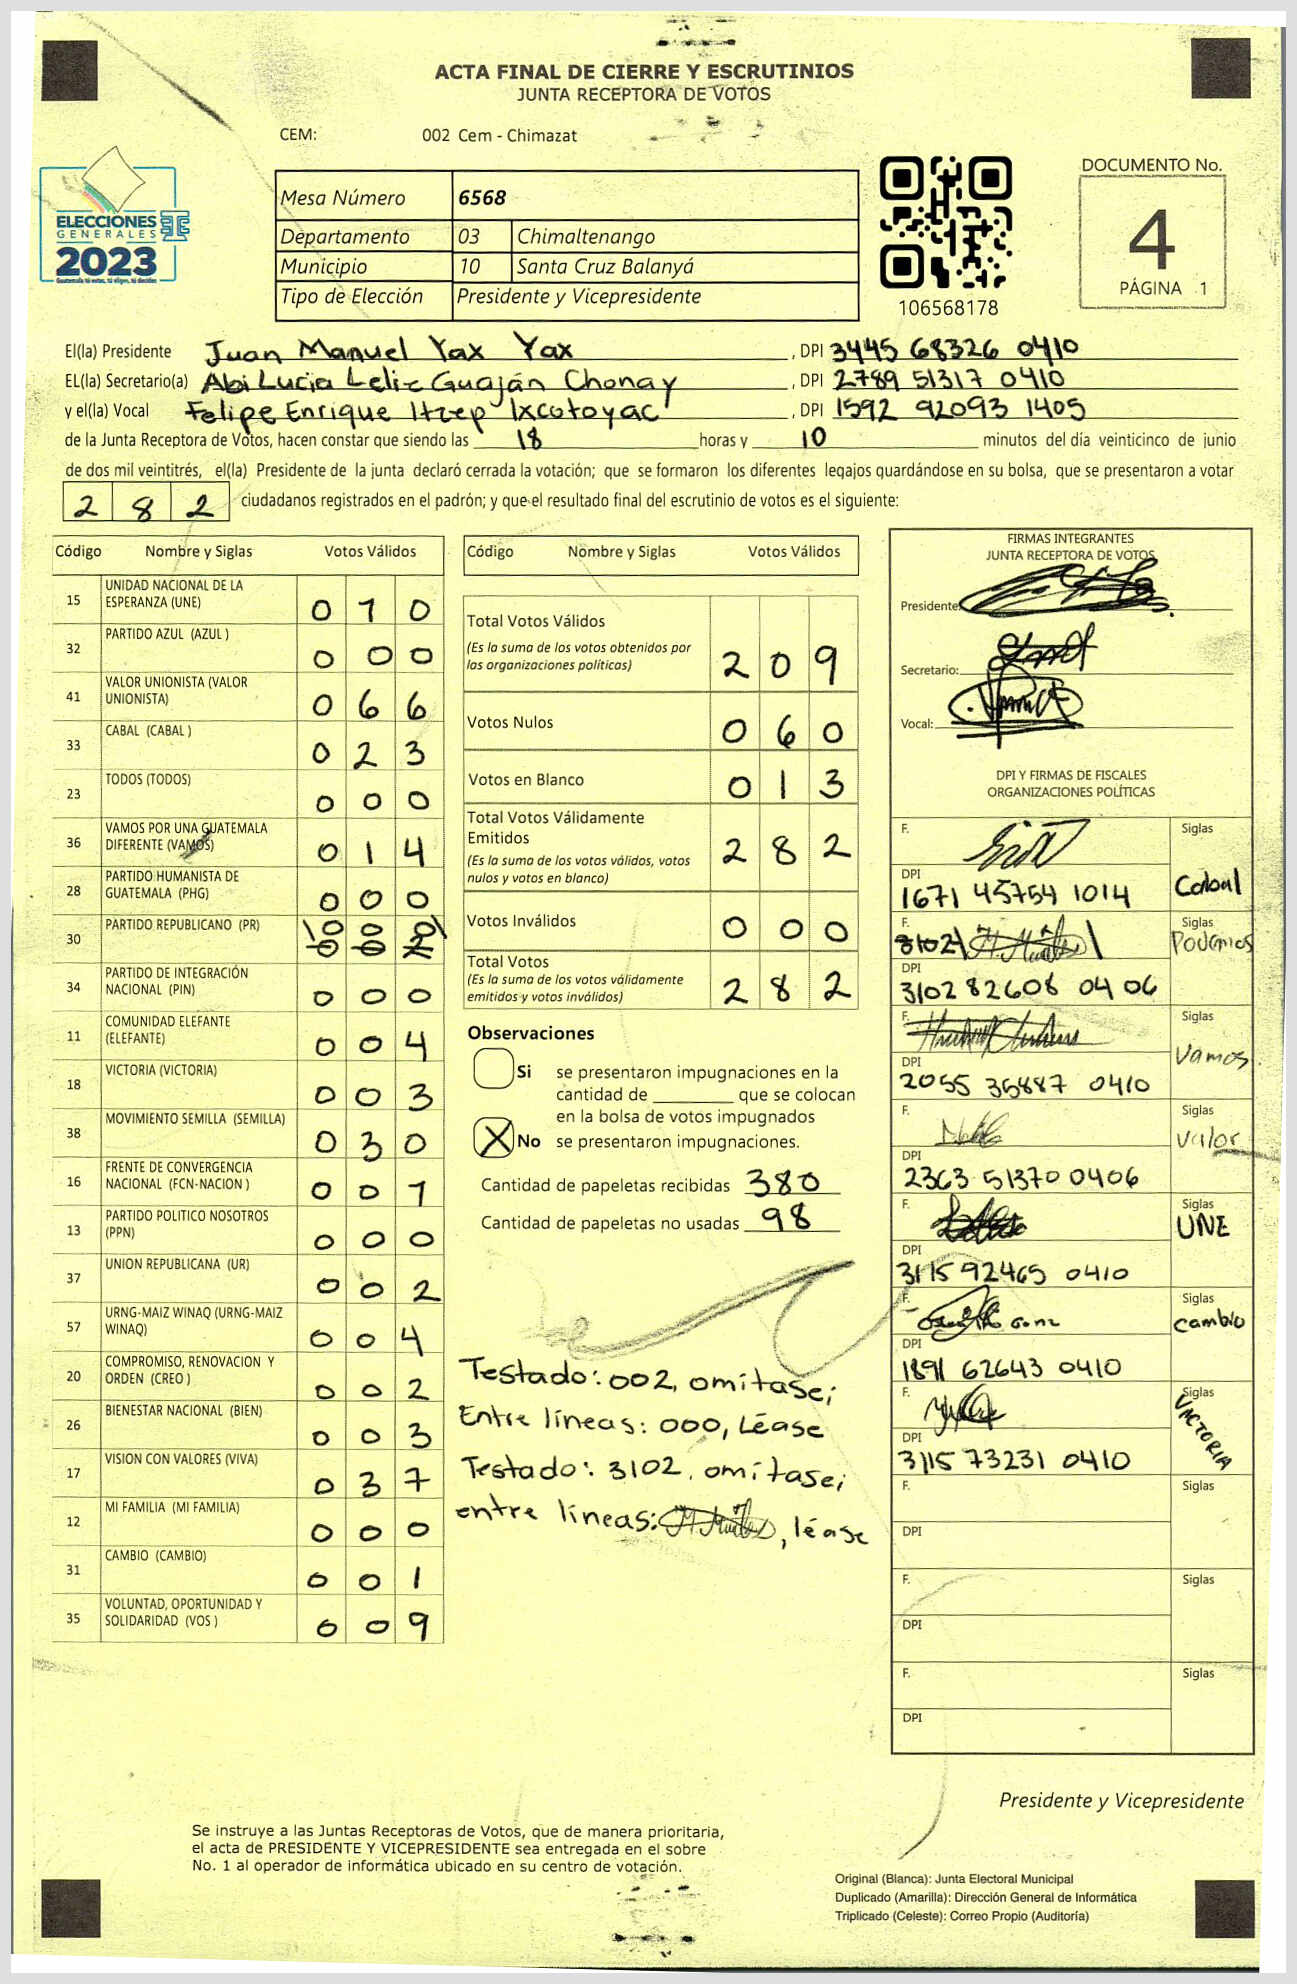 ACTA FINAL DE CIERRE Y ESCRUTINIOS
JUNTA RECEPTORA DE VOTOS
CEM: 002 Cem - Chimazat
ELECCIONES
GENERALES
2023
Guatemala tú estás, tú eliges, tú decides
Mesa Número 6568
Departamento 03 Chimaltenango
Municipio 10 Santa Cruz Balanyá
Tipo de Elección Presidente y Vicepresidente
106568178
DOCUMENTO No.
4
PÁGINA 1
El(la) Presidente Juan Manuel Yax Yax, DPI 3445 68326 0410
EL(la) Secretario(a) Abi Lucia Leliz Guaján Chonay, DPI 2789 51317 0410
y el(la) Vocal Felipe Enrique Itzep Ixcotoyac, DPI 1592 92093 1405
de la Junta Receptora de Votos, hacen constar que siendo las 18 horas y 10 minutos del día veinticinco de junio
de dos mil veintitrés, el(la) Presidente de la junta declaró cerrada la votación; que se formaron los diferentes legajos guardándose en su bolsa, que se presentaron a votar
282 ciudadanos registrados en el padrón; y que el resultado final del escrutinio de votos es el siguiente:
Código Nombre y Siglas Votos Válidos
15 UNIDAD NACIONAL DE LA ESPERANZA (UNE) 0 1 0
32 PARTIDO AZUL (AZUL ) 0 0 0
41 VALOR UNIONISTA (VALOR UNIONISTA) 0 6 6
33 CABAL (CABAL ) 0 2 3
23 TODOS (TODOS) 0 0 0
36 VAMOS POR UNA GUATEMALA DIFERENTE (VAMOS) 0 1 4
28 PARTIDO HUMANISTA DE GUATEMALA (PHG) 0 0 0
30 PARTIDO REPUBLICANO (PR) \0 0 0\ 0 0 2
34 PARTIDO DE INTEGRACIÓN NACIONAL (PIN) 0 0 0
11 COMUNIDAD ELEFANTE (ELEFANTE) 0 0 4
18 VICTORIA (VICTORIA) 0 0 3
38 MOVIMIENTO SEMILLA (SEMILLA) 0 3 0
16 FRENTE DE CONVERGENCIA NACIONAL (FCN-NACION ) 0 0 1
13 PARTIDO POLITICO NOSOTROS (PPN) 0 0 0
37 UNION REPUBLICANA (UR) 0 0 2
57 URNG-MAIZ WINAQ (URNG-MAIZ WINAQ) 0 0 4
20 COMPROMISO, RENOVACION Y ORDEN (CREO ) 0 0 2
26 BIENESTAR NACIONAL (BIEN) 0 0 3
17 VISION CON VALORES (VIVA) 0 3 7
12 MI FAMILIA (MI FAMILIA) 0 0 0
31 CAMBIO (CAMBIO) 0 0 1
35 VOLUNTAD, OPORTUNIDAD Y SOLIDARIDAD (VOS ) 0 0 9
Código Nombre y Siglas Votos Válidos
Total Votos Válidos
(Es la suma de los votos obtenidos por
las organizaciones políticas) 2 0 9
Votos Nulos 0 6 0
Votos en Blanco 0 1 3
Total Votos Válidamente
Emitidos 2 8 2
(Es la suma de los votos válidos, votos
nulos y votos en blanco)
Votos Inválidos 0 0 0
Total Votos
(Es la suma de los votos válidamente
emitidos y votos inválidos) 2 8 2
Observaciones
Si se presentaron impugnaciones en la
cantidad de ________ que se colocan
en la bolsa de votos impugnados
X No se presentaron impugnaciones.
Cantidad de papeletas recibidas 380
Cantidad de papeletas no usadas 98
Testado: 002, omítase;
Entre líneas: 000, Léase
Testado: 3102, omítase;
entre líneas: , léase
FIRMAS INTEGRANTES
JUNTA RECEPTORA DE VOTOS
Presidente:
Secretario:
Vocal:
DPI Y FIRMAS DE FISCALES
ORGANIZACIONES POLÍTICAS
F. Siglas
DPI
1671 45754 1014 Cabal
F. 3102 Siglas
Podemos
DPI
3102 82608 0406
F. Siglas
Vamos
DPI
2055 35887 0410
F. Siglas
Valor
DPI
2363 51370 0406
F. Siglas
UNE
DPI
3115 92465 0410
F. Siglas
cambio
DPI
1891 62643 0410
F. Siglas
VICTORIA
DPI
3115 73231 0410
F. Siglas
DPI
F. Siglas
DPI
F. Siglas
DPI
Presidente y Vicepresidente
Se instruye a las Juntas Receptoras de Votos, que de manera prioritaria,
el acta de PRESIDENTE Y VICEPRESIDENTE sea entregada en el sobre
No. 1 al operador de informática ubicado en su centro de votación.
Original (Blanca): Junta Electoral Municipal
Duplicado (Amarilla): Dirección General de Informática
Triplicado (Celeste): Correo Propio (Auditoría)